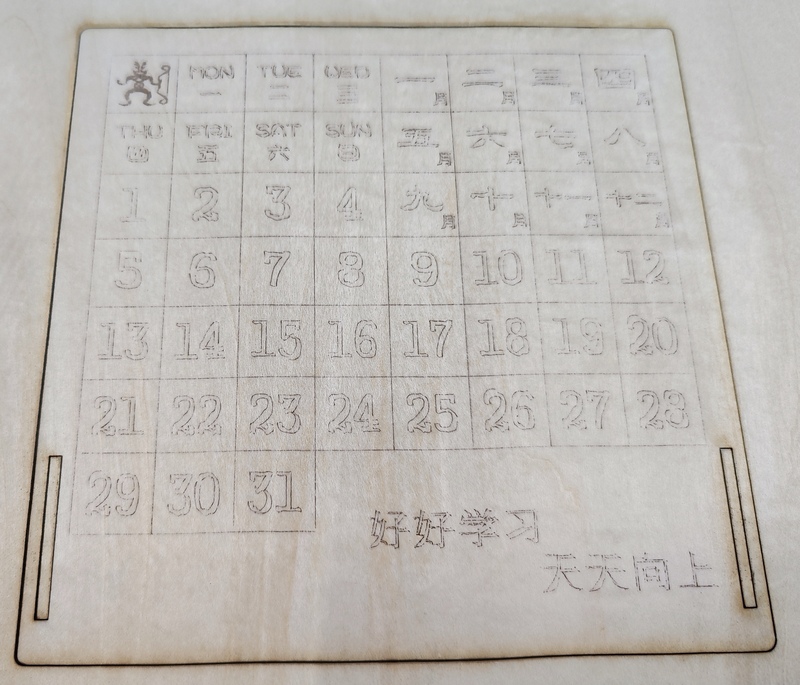 MON TUE WED 一月 二月 三月 四月
一 二 三
THU FRI SAT SUN 五月 六月 七月 八月
四 五 六 日
1 2 3 4 九月 十月 十一月 十二月
5 6 7 8 9 10 11 12
13 14 15 16 17 18 19 20
21 22 23 24 25 26 27 28
29 30 31
好好学习
天天向上